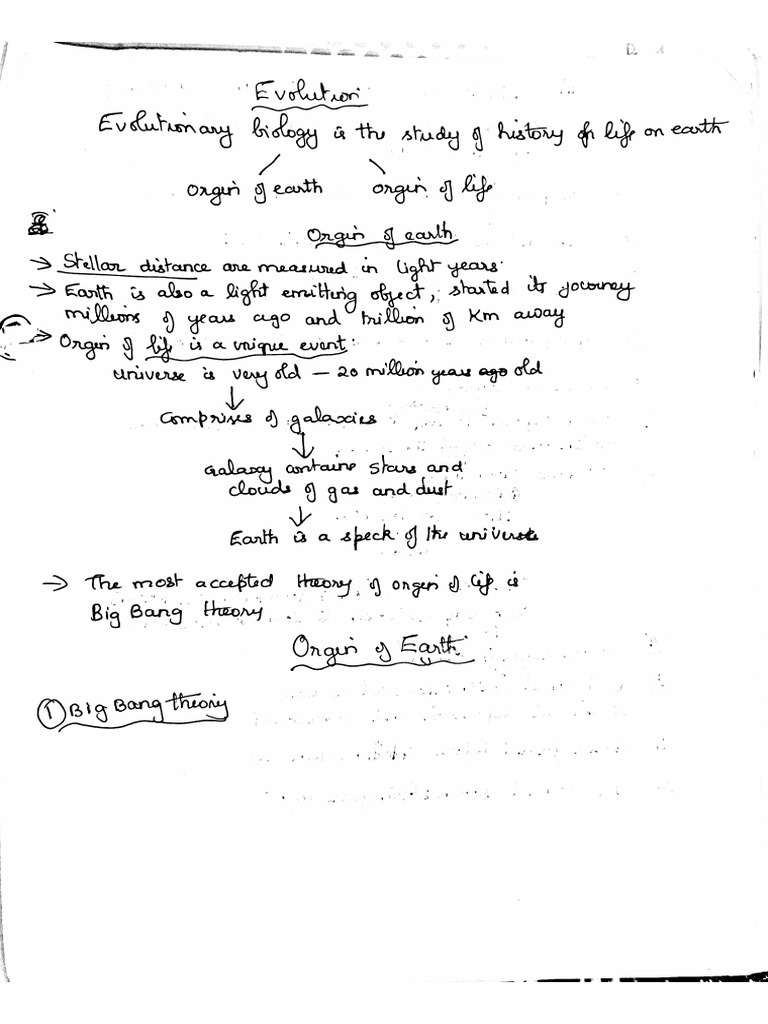 Evolution
Evolutionary biology is the study of history of life on earth
Orgin of earth orgin of life
Orgin of earth
→ Stellar distance are measured in light years.
→ Earth is also a light emitting object, started its journey
millions of years ago and trillion of Km away
→ Orgin of life is a unique event:
universe is very old – 20 million years ago old
↓
Comprises of galaxies
↓
Galaxy contains stars and
clouds of gas and dust
↓
Earth is a speck of the universe
→ The most accepted theory of orgen of life is
Big Bang theory
Orgin of Earth
① Big Bang theory